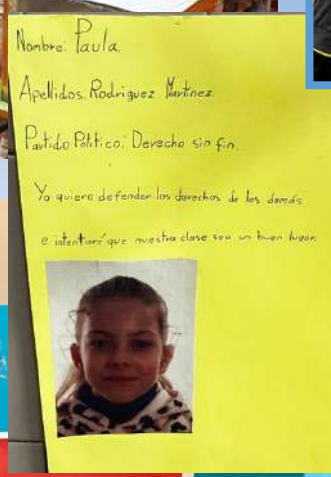 Nombre: Paula.
Apellidos: Rodriguez Martinez.
Partido Político: Derecho sin fin.
Yo quiero defender los derechos de los demás
e intentaré que nuestra clase sea un buen lugar.